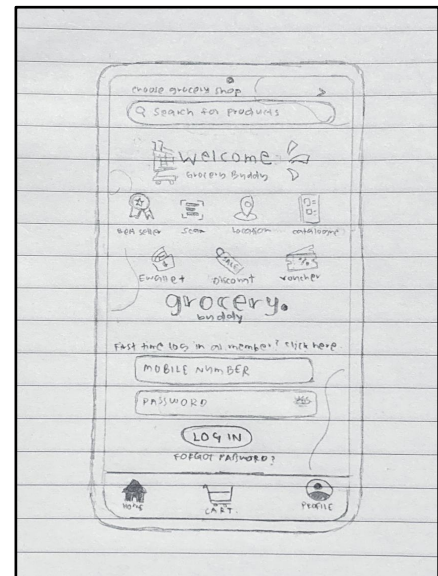 choose grocery shop >
Search for products
welcome
Grocery Buddy
Best seller scan location catalogue
Ewallet Discount voucher
grocery.
buddy
First time log in as member? click here.
MOBILE NUMBER
PASSWORD
LOG IN
FORGOT PASSWORD?
HOME CART PROFILE